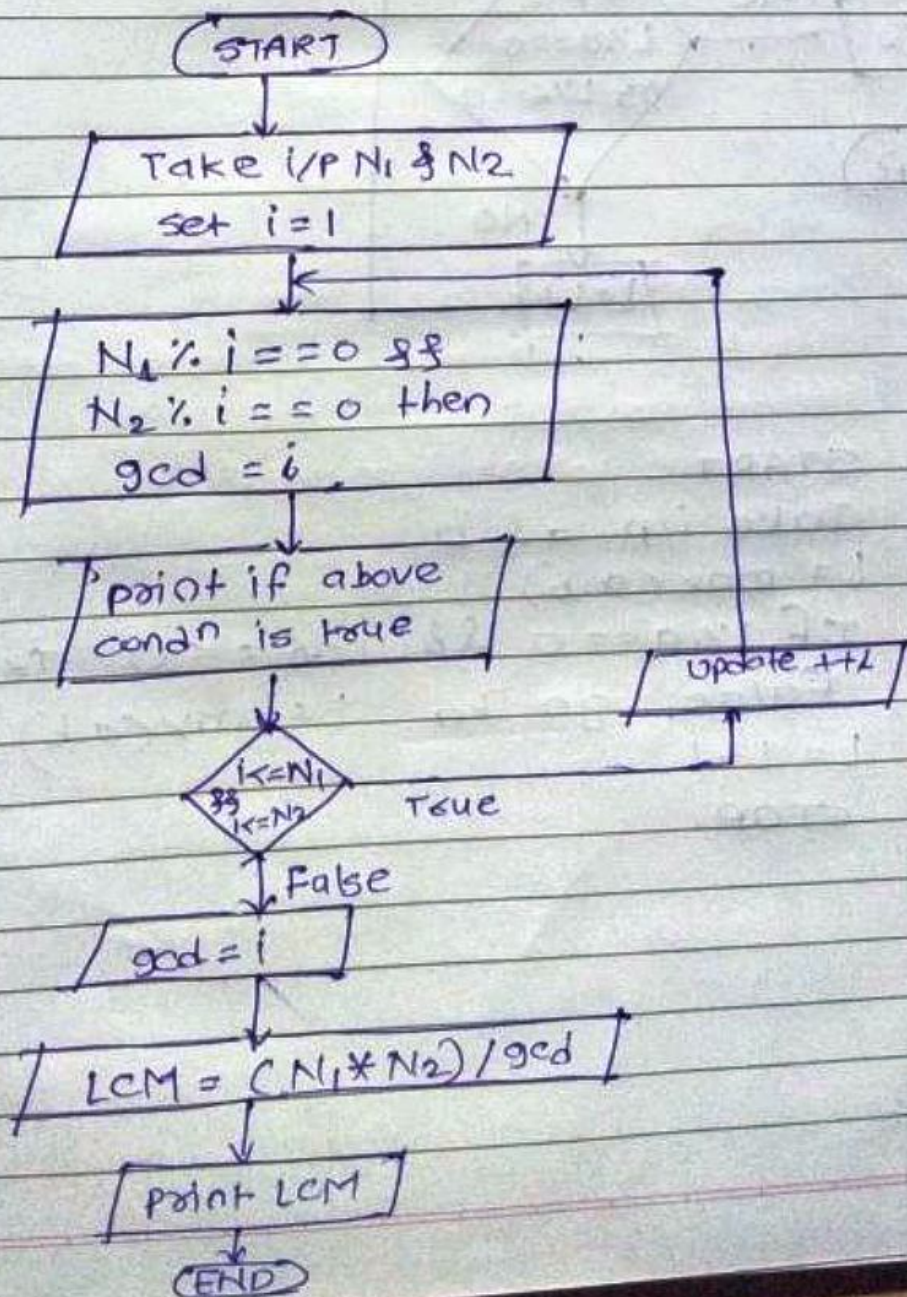 START
Take i/p N1 & N2
set i = 1
N1 % i == 0 &&
N2 % i == 0 then
gcd = i
print if above
condn is true
update ++i
i<=N1
&&
i<=N2
True
False
gcd = i
LCM = (N1 * N2) / gcd
print LCM
END